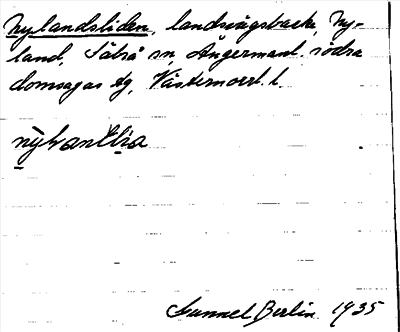 Nylandsliden, landsvägsbacke, Ny-
land, Säbrå sn, Ångermanl. södra
domsagas tg, Västernorrl. l.
Gunnel Berlin 1935